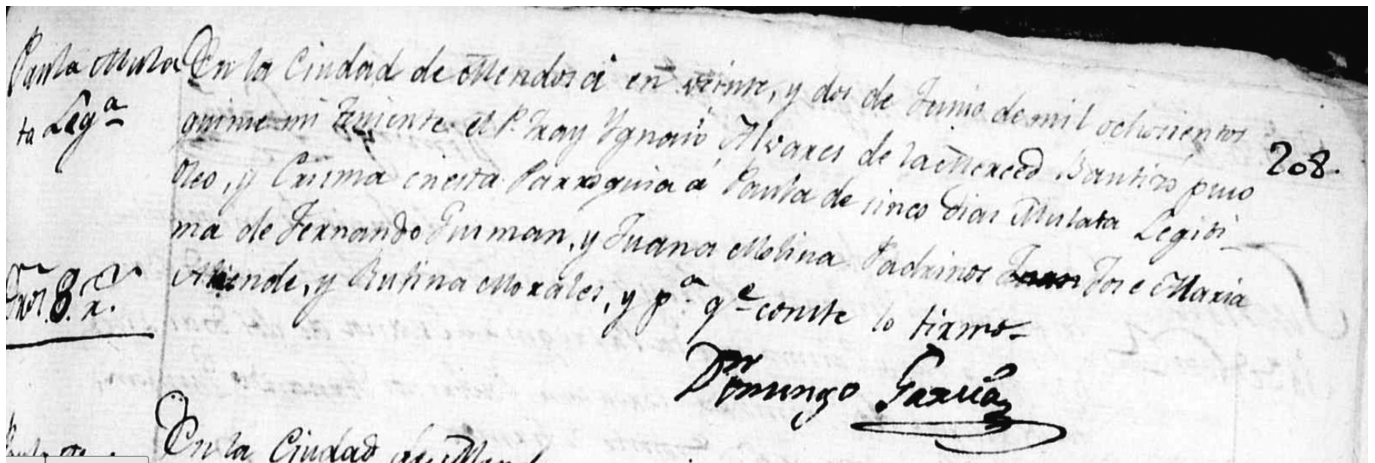 Paula Mula
ta Leg.ª
En la Ciudad de Mendosa en veinte, y dos de Junio de mil ochosientos
quinse mi Teniente el P. Fray Ygnacio Alvares de la Merced Bautisó puso
Oleo, y Crisma en esta Parroquia á Paula de sinco dias Mulata Legiti
ma de Fernando Gusman, y Juana Molina Padrinos Jose Maria
Allende, y Rufina Morales, y p.ª q.e conste lo firmo
208.
8 r.
D.or Domingo Garcia
En la Ciudad de